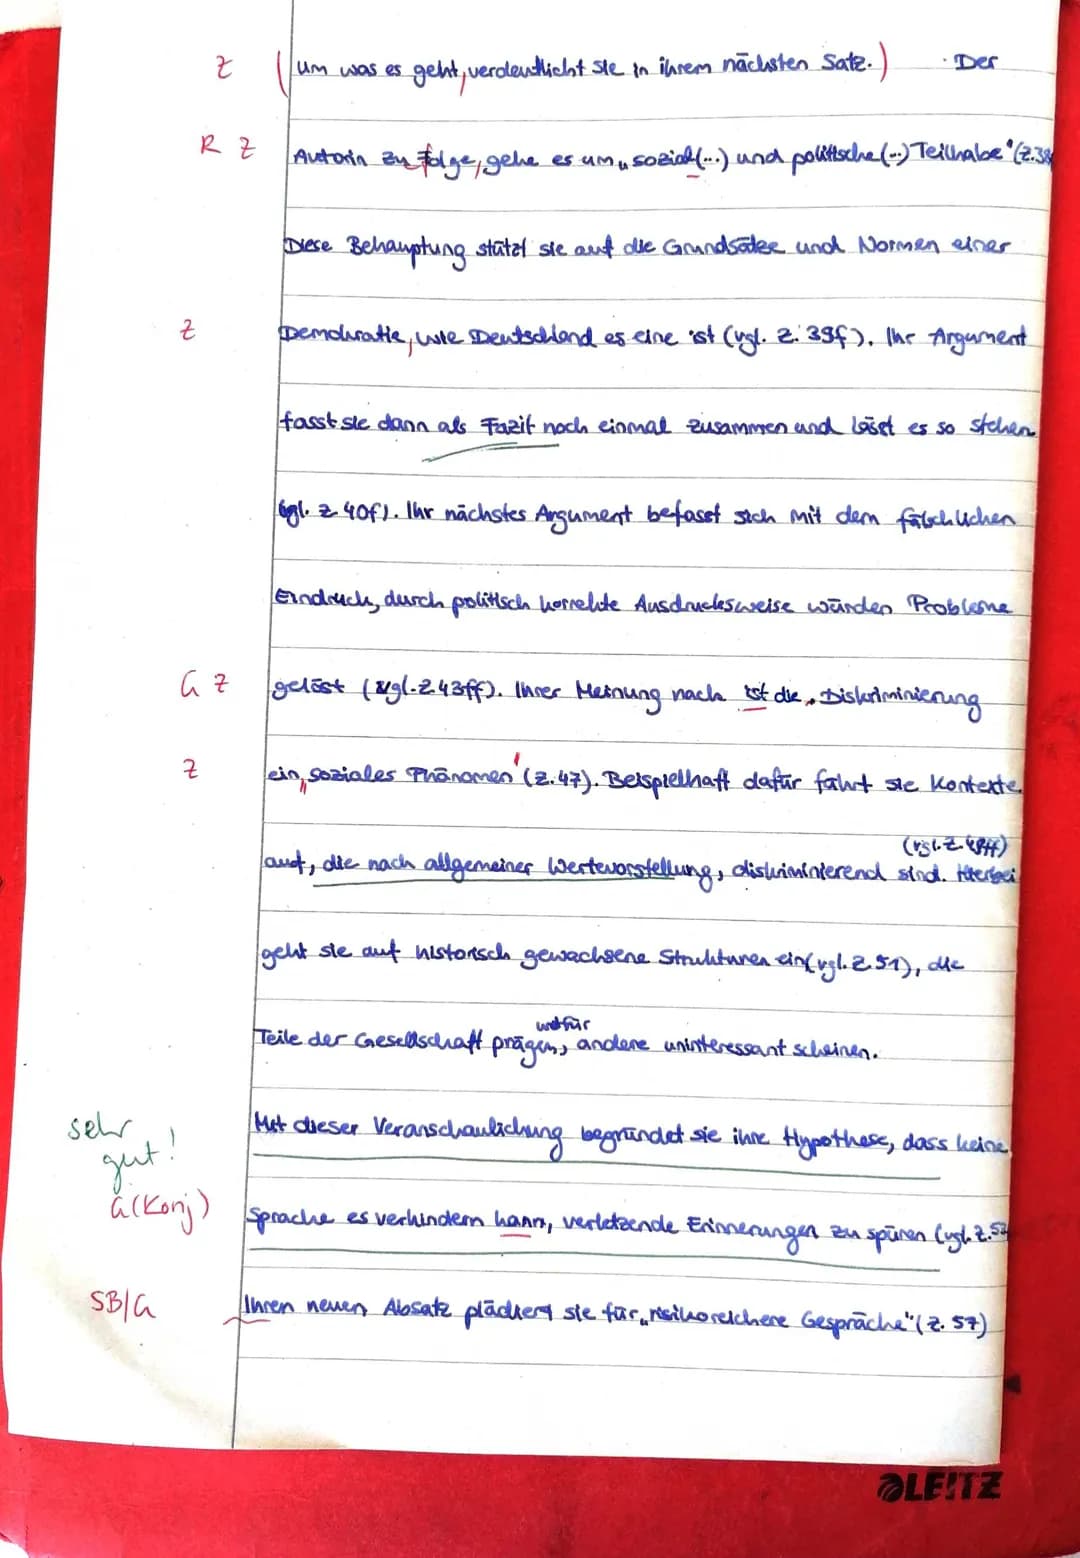 Z (um was es geht, verdeutlicht sie in ihrem nächsten Satz.) Der
R Z Autorin zu folge, gehe es um „sozial(...) und politische(...) Teilhabe" (Z.38
Diese Behauptung stützt sie auf die Grundsätze und Normen einer
Z Demokratie, wie Deutschland es eine ist (vgl. Z. 39f). Ihr Argument
fasst sie dann als Fazit noch einmal zusammen und lässt es so stehen
(vgl. Z 40f). Ihr nächstes Argument befasst sich mit dem fälschlichen
Eindruck, durch politisch korrekte Ausdrucksweise würden Probleme
G Z gelöst (vgl. Z.43ff). Ihrer Meinung nach ist die „Diskriminierung
Z ein „soziales Phänomen" (Z.47). Beispielhaft dafür führt sie Kontexte
(vgl. Z. 48ff)
auf, die nach allgemeiner Wertevorstellung, diskriminierend sind. Hierbei
geht sie auf historisch gewachsene Strukturen ein (vgl. Z 51), die
wofür
Teile der Gesellschaft prägen, andere uninteressant scheinen.
sehr gut! Mit dieser Veranschaulichung begründet sie ihre Hypothese, dass keine
G(Konj) Sprache es verhindern kann, verletzende Erinnerungen zu spüren (vgl. Z.53
SB/G Ihren neuen Absatz plädiert sie für „risikoreichere Gespräche" (Z. 57)
LEITZ